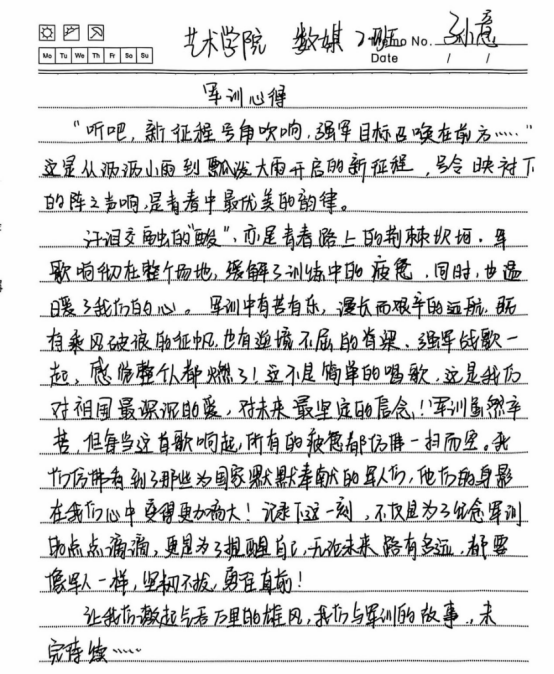 艺术学院 数媒2班 孙意
Memo No.
Mo Tu We Th Fr Sa Su
Date / /
军训心得
“听吧，新征程号角吹响，强军目标召唤在前方……”
这是从沥沥小雨到瓢泼大雨开启的新征程，号令映衬下
的阵阵声响，是青春中最优美的韵律。
汗泪交融出的“酸”，亦是青春路上的荆棘坎坷。军
歌响彻在整个场地，缓解了训练中的疲惫，同时，也温
暖了我们的心。军训中有苦有乐，漫长而艰辛的远航，既
有乘风破浪的征帆，也有逆境不屈的脊梁。强军战歌一
起，感觉整个人都燃了！这不是简单的唱歌，这是我们
对祖国最深沉的爱，对未来最坚定的信念！军训虽然辛
苦，但每当这首歌响起，所有的疲惫都仿佛一扫而空。我
们仿佛看到了那些为国家默默奉献的军人们，他们的身影
在我们心中变得更加高大！记录下这一刻，不仅是为了纪念军训
的点点滴滴，更是为了提醒自己，无论未来路有多远，都要
像军人一样，坚韧不拔，勇往直前！
让我们激起乐云万里的雄风，我们与军训的故事，未
完待续……